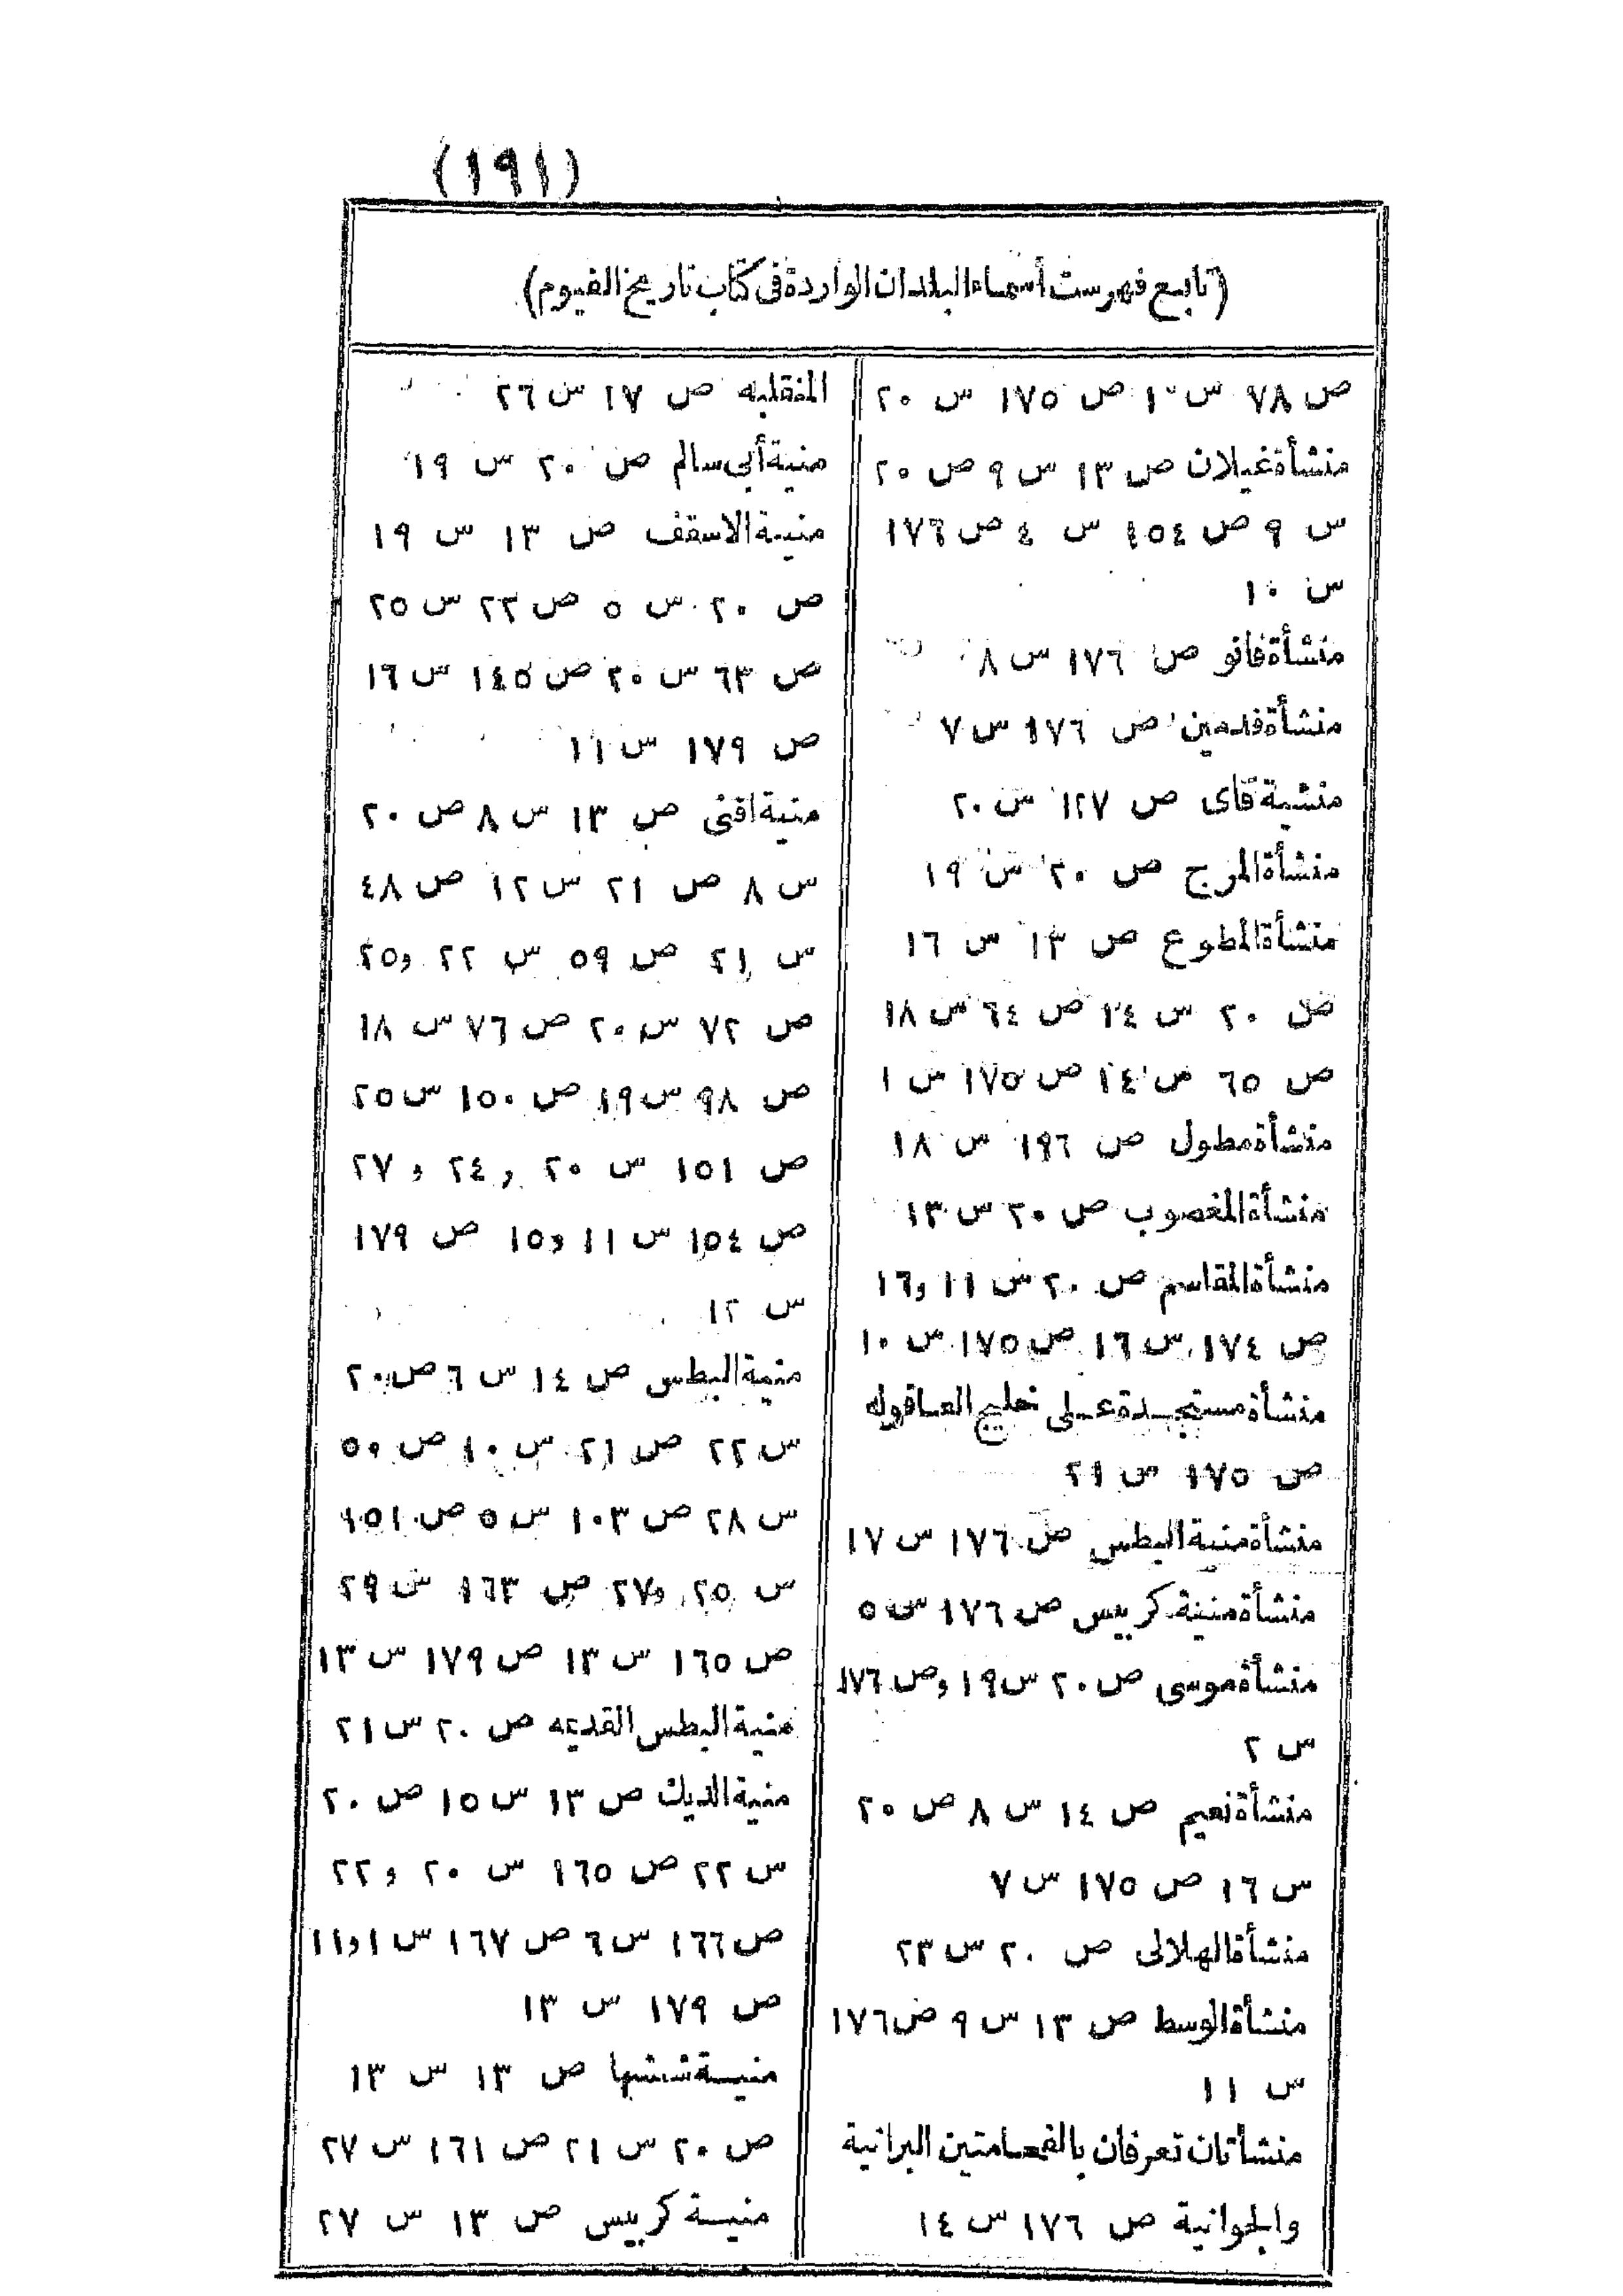 (١٩١)
(تابع فهرست أسماء البلدان الواردة فى كتاب تاريخ الفيوم)
ص ٧٨ س ١٠ ص ١٧٥ س ٢٠
منشأة غيلان ص ١٣ س ٩ ص ٢٠
س ٩ ص ١٥٤ س ٤ ص ١٧٦
س ١٠
منشأة فانو ص ١٧٦ س ٨
منشأة فدمين ص ١٧٦ س ٧
منشية قاى ص ١٢٧ س ٢٠
منشأة المرج ص ٢٠ س ١٩
منشأة المطوع ص ١٣ س ١٦
ص ٢٠ س ١٤ ص ٦٤ س ١٨
ص ٦٥ س ١٤ ص ١٧٥ س ١
منشأة مطول ص ١٩٦ س ١٨
منشأة المغصوب ص ٢٠ س ١٣
منشأة المقاسم ص ٢٠ س ١١ و١٦
ص ١٧٤ س ١٦ ص ١٧٥ س ١٠
منشأة مستجدة على خليج العاقوله
ص ١٧٥ س ٢١
منشأة منية البطس ص ١٧٦ س ١٧
منشأة منية كربيس ص ١٧٦ س ٥
منشأة موسى ص ٢٠ س ١٩ وص ١٧٦
س ٢
منشأة نعيم ص ١٤ س ٨ ص ٢٠
س ١٦ ص ١٧٥ س ٧
منشأة الهلالى ص ٢٠ س ٢٣
منشأة الوسط ص ١٣ س ٩ ص ١٧٦
س ١١
منشأتان تعرفان بالقحامتين البرانية
والجوانية ص ١٧٦ س ١٤
المنقلبه ص ١٧ س ٢٦
منية أبى سالم ص ٢٠ س ١٩
منية الاسقف ص ١٣ س ١٩
ص ٢٠ س ٥ ص ٢٣ س ٢٥
ص ٦٣ س ٢٠ ص ١٤٥ س ١٦
ص ١٧٩ س ١١
منية اقنى ص ١٣ س ٨ ص ٢٠
س ٨ ص ٢١ س ١٢ ص ٤٨
س ٢١ ص ٥٩ س ٢٢ و٢٥
ص ٧٢ س ٢٠ ص ٧٦ س ١٨
ص ٩٨ س ١٩ ص ١٥٠ س ٢٥
ص ١٥١ س ٢٠ و ٢٤ و ٢٧
ص ١٥٤ س ١١ و١٥ ص ١٧٩
س ١٢
منية البطس ص ١٤ س ٦ ص ٢٠
س ٢٢ ص ٢١ س ١٠ ص ٥٠
س ٢٨ ص ١٠٣ س ٥ ص ١٥١
س ٢٥ و٢٧ ص ١٦٣ س ٢٩
ص ١٦٥ س ١٣ ص ١٧٩ س ١٣
منية البطس القديمه ص ٢٠ س ٢١
منية الديك ص ١٣ س ١٥ ص ٢٠
س ٢٢ ص ١٦٥ س ٢٠ و ٢٢
ص ١٦٦ س ٦ ص ١٦٧ س ١ و١١
ص ١٧٩ س ١٣
منية ششها ص ١٣ س ١٣
ص ٢٠ س ٢١ ص ١٦١ س ٢٧
منية كربيس ص ١٣ س ٢٧